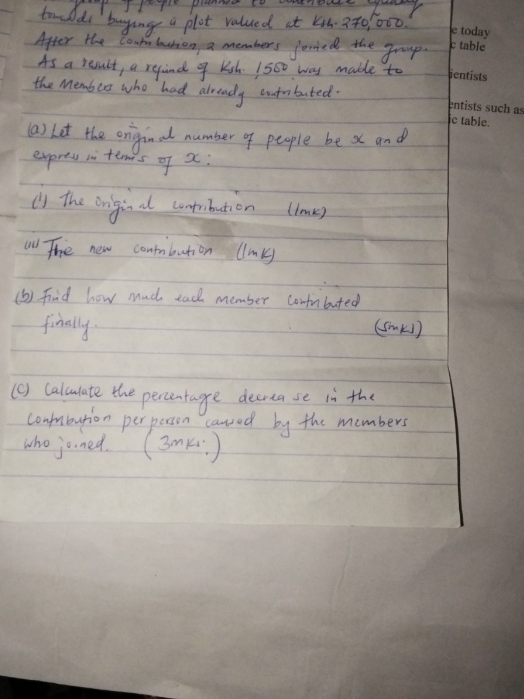 group of people planned to contribute equally
towards buying a plot valued at Ksh. 270,000.
After the contribution, 2 members joined the group.
As a result, a refund of Ksh. 1500 was made to
the members who had already contributed.
(a) Let the original number of people be x and
express in terms of x:
(i) The original contribution (1mk)
(ii) The new contribution (1mk)
(b) Find how much each member contributed
finally. (5mks)
(c) Calculate the percentage decrease in the
contribution per person caused by the members
who joined. (3mks.)
e today
c table
ientists
entists such as
ic table.